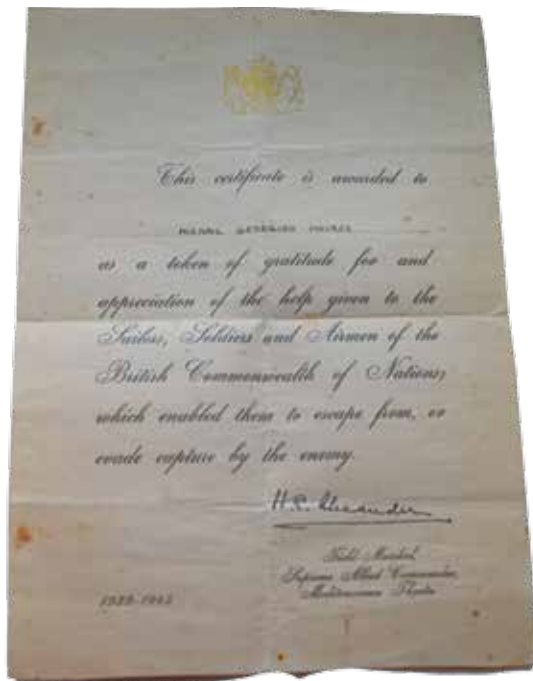 This certificate is awarded to
as a token of gratitude for and
appreciation of the help given to the
Sailors, Soldiers and Airmen of the
British Commonwealth of Nations,
which enabled them to escape from, or
evade capture by the enemy.
H.R. Alexander
Field Marshal,
Supreme Allied Commander,
Mediterranean Theatre
1939-1945